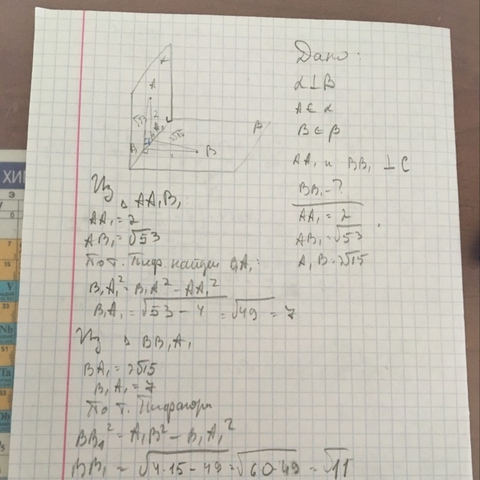 Дано:
α⊥β
A∈α
B∈β
AA₁ и BB₁ ⊥ C
BB₁-?
AA₁ = 2
AB₁ = √53
A₁B = 2√15
α
A
√53
2
B
B
Из △ AA₁B₁
AA₁ = 2
AB₁ = √53
По т. Пиф найдем B₁A₁:
B₁A₁² = B₁A² - AA₁²
B₁A₁ = √53 - 4 = √49 = 7
Из △ BB₁A₁
BA₁ = 2√15
B₁A₁ = 7
По т. Пифагора
BB₁² = A₁B² - B₁A₁²
BB₁ = √4·15-49 = √60-49 = √11
ХИМ
V
Nb
Ta
Db